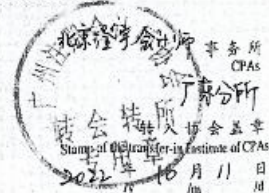 北京 会计师 事务所
CPAs
广东分所
转入协会盖章
Stamp of the transfer-in Institute of CPAs
2022 年 10 月 11 日
/y /m /d
广州注
转会转所
专用章